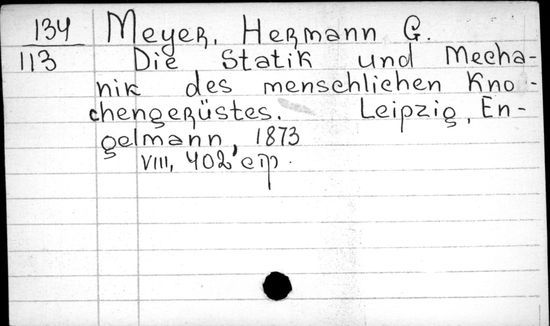 134 Meyer, Hermann G.
113 Die Statik und Mecha-
nik des menschlichen Kno-
chengerüstes. Leipzig, En-
gelmann, 1873
VIII, 402 стр.